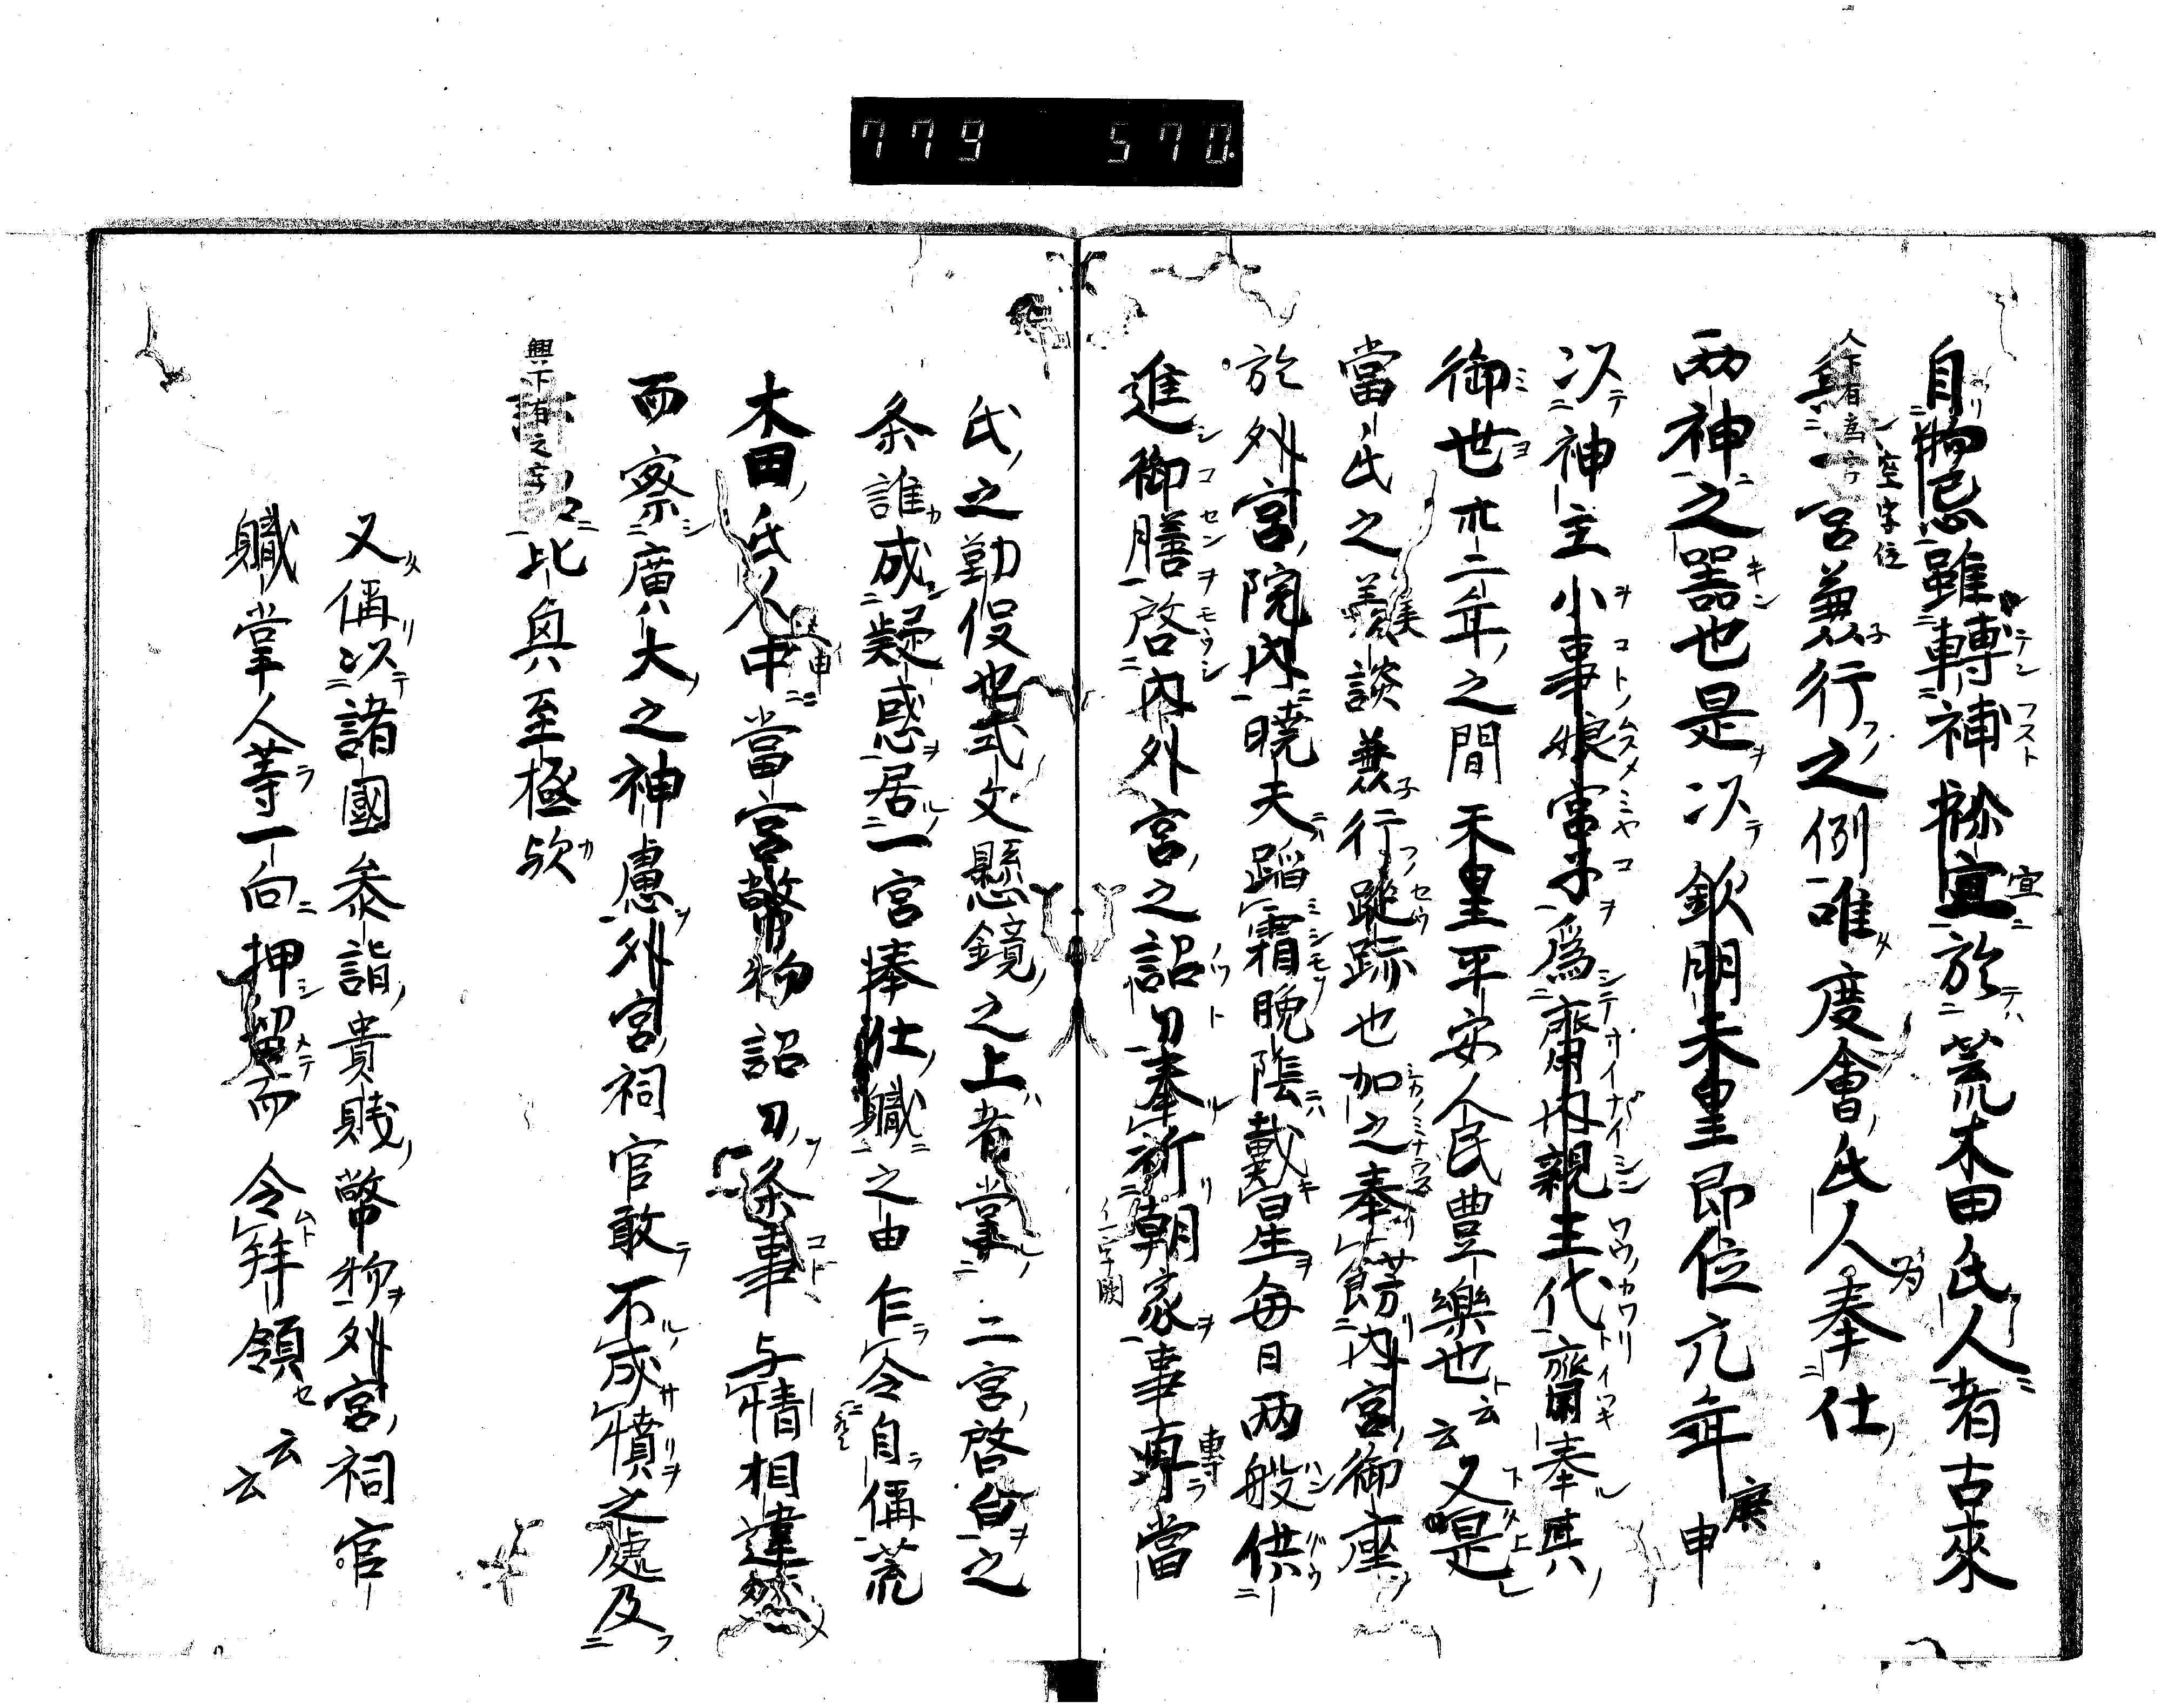 779 570.
自物忌雖轉補祢宜於荒木田氏人者古來
一宮兼行之例唯度會氏人奉仕
兩神之器也是以欽明天皇即位元年庚申
以神主小事娘宮子爲齋内親王代齋奉其
御世卅二年之間天皇平安人民豊樂也云云又是
當氏之美談兼行蹤跡也加之奉餝内宮御座
於外宮院内曉夫蹈霜晩陰戴星毎日两般供
進御膳啓内外宮之詔刀奉祈朝家事專當
氏之勤役也式文懸鏡之上者掌二宮啓白之
条誰成疑惑居一宮捧仕職之由乍令自偁荒
木田氏人中當宮幣物詔刀条事与情相違然
而察廣大之神慮外宮祠官敢不成憤之處及
比興至極欤
又偁以諸國参詣貴賎幣物外宮祠官
職掌人等一向押留而令拜領云云